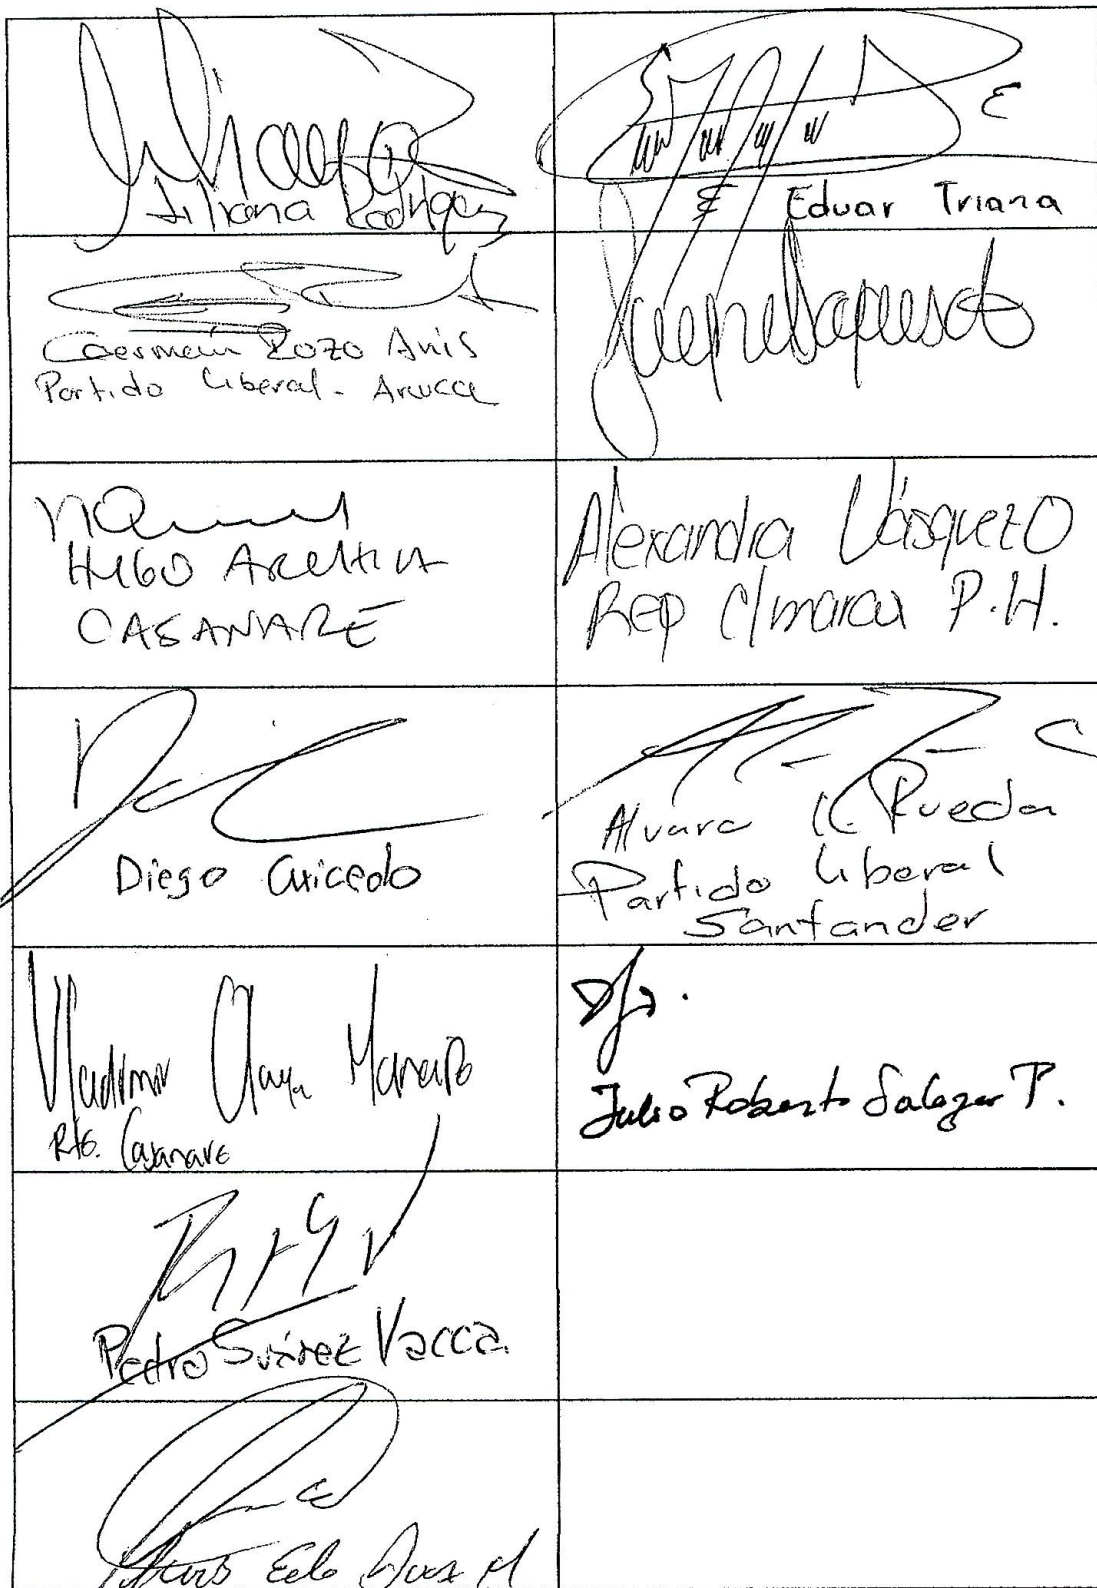 Liliana Rodríguez
Eduar Triana
Germán Rozo Anís
Partido Liberal - Arauca
HUGO ARCHILA
CASANARE
Alexandra Vásquez O
Rep C/marca P.H.
Diego Caicedo
Alvaro L. Rueda
Partido Liberal
Santander
Vladimir Olaya Mancipe
Rte. Casanare
Julio Roberto Salazar P.
Pedro Suárez Vacca